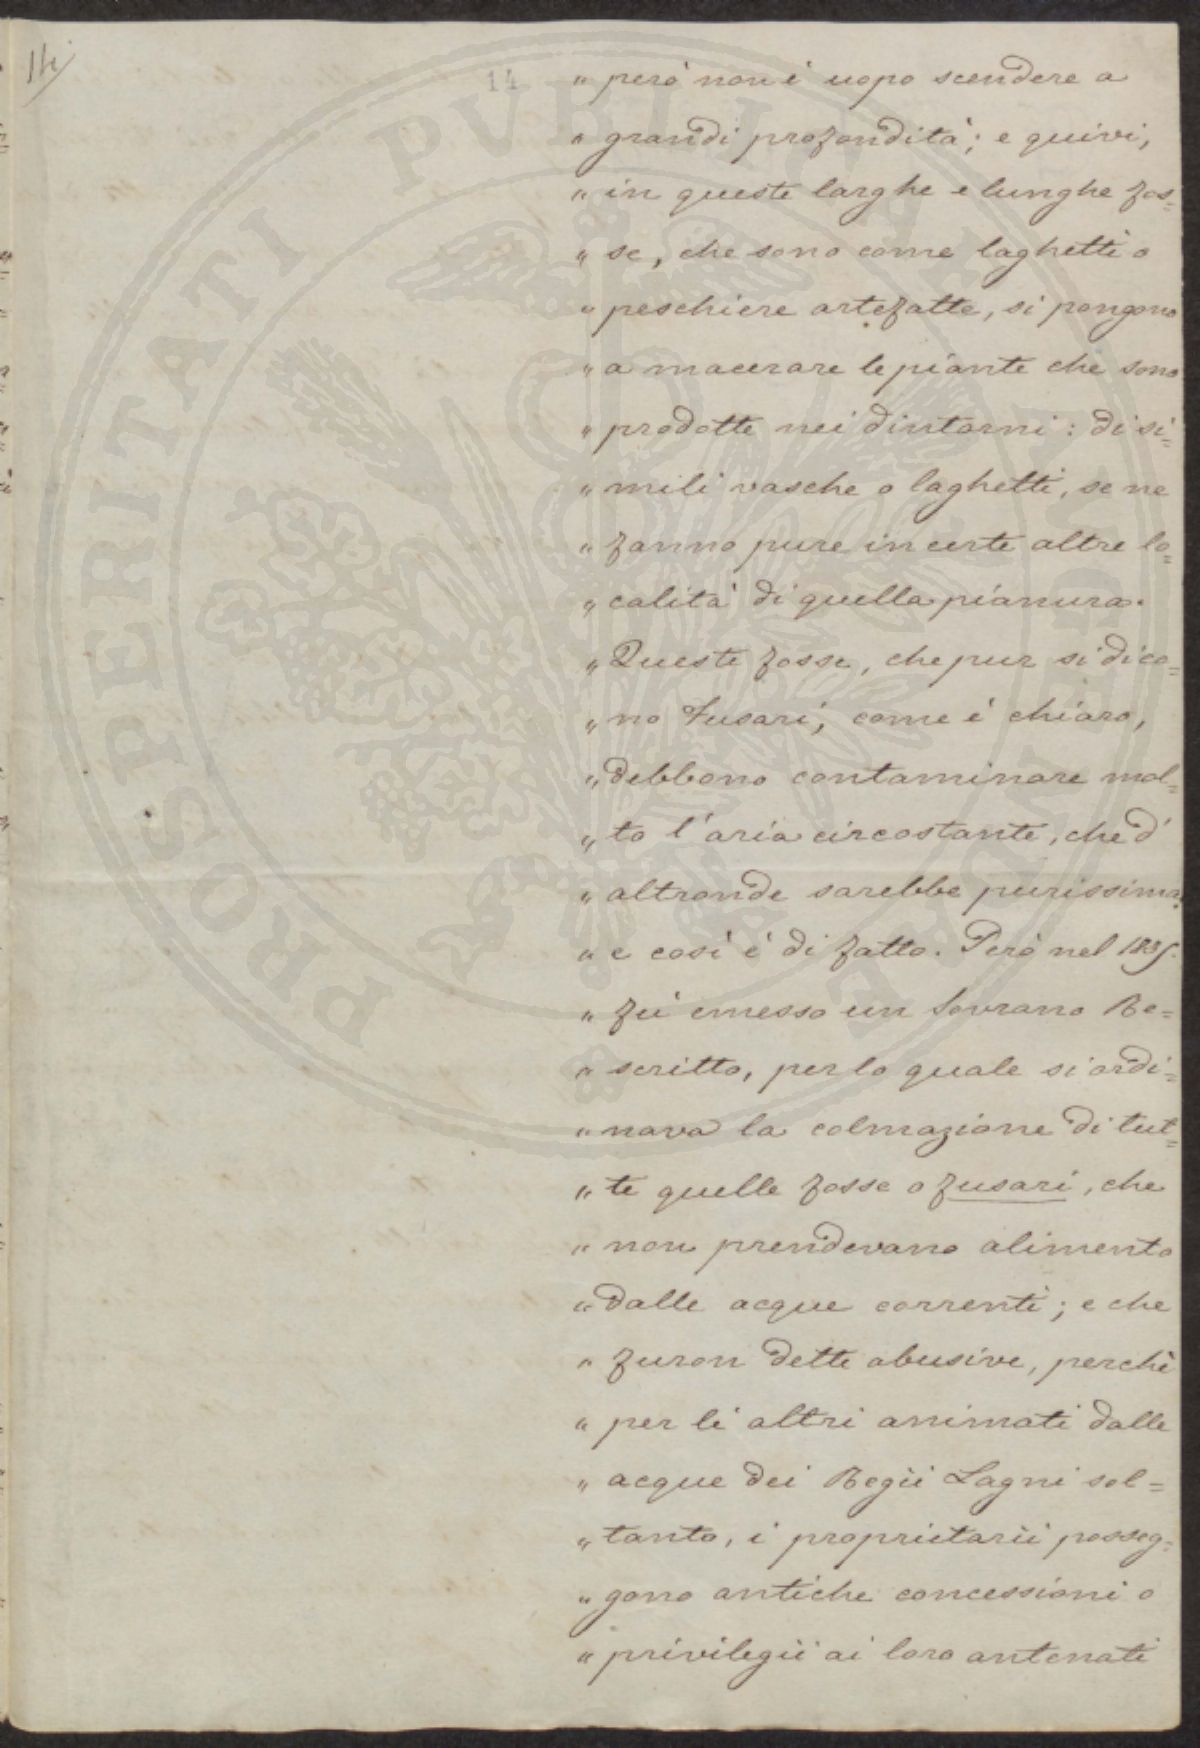 14
14
" però non è uopo scendere a
" grandi profondità; e quivi,
" in queste larghe e lunghe fos=
" se, che sono come laghetti o
" peschiere artefatte, si pongono
" a macerare le piante che sono
" prodotte nei dintorni: di si=
" mili vasche o laghetti, se ne
" fanno pure in certe altre lo=
" calità di quella pianura.
" Queste fosse, che pur si dico=
" no Fusari, come è chiaro,
" debbono contaminare mol=
" to l'aria circostante, che d'
" altronde sarebbe purissima:
" e così è di fatto. Però nel 1835.
" fù emesso un Sovrano Re=
" scritto, per lo quale si ordi=
" nava la colmazione di tut=
" te quelle fosse o fusari, che
" non prendevano alimento
" dalle acque correnti; e che
" furon dette abusive, perchè
" per li altri animati dalle
" acque dei Regii Lagni sol=
" tanto, i proprietarii posseg=
" gono antiche concessioni o
" privilegii ai loro antenati
PROSPERITATI PVBLICAE